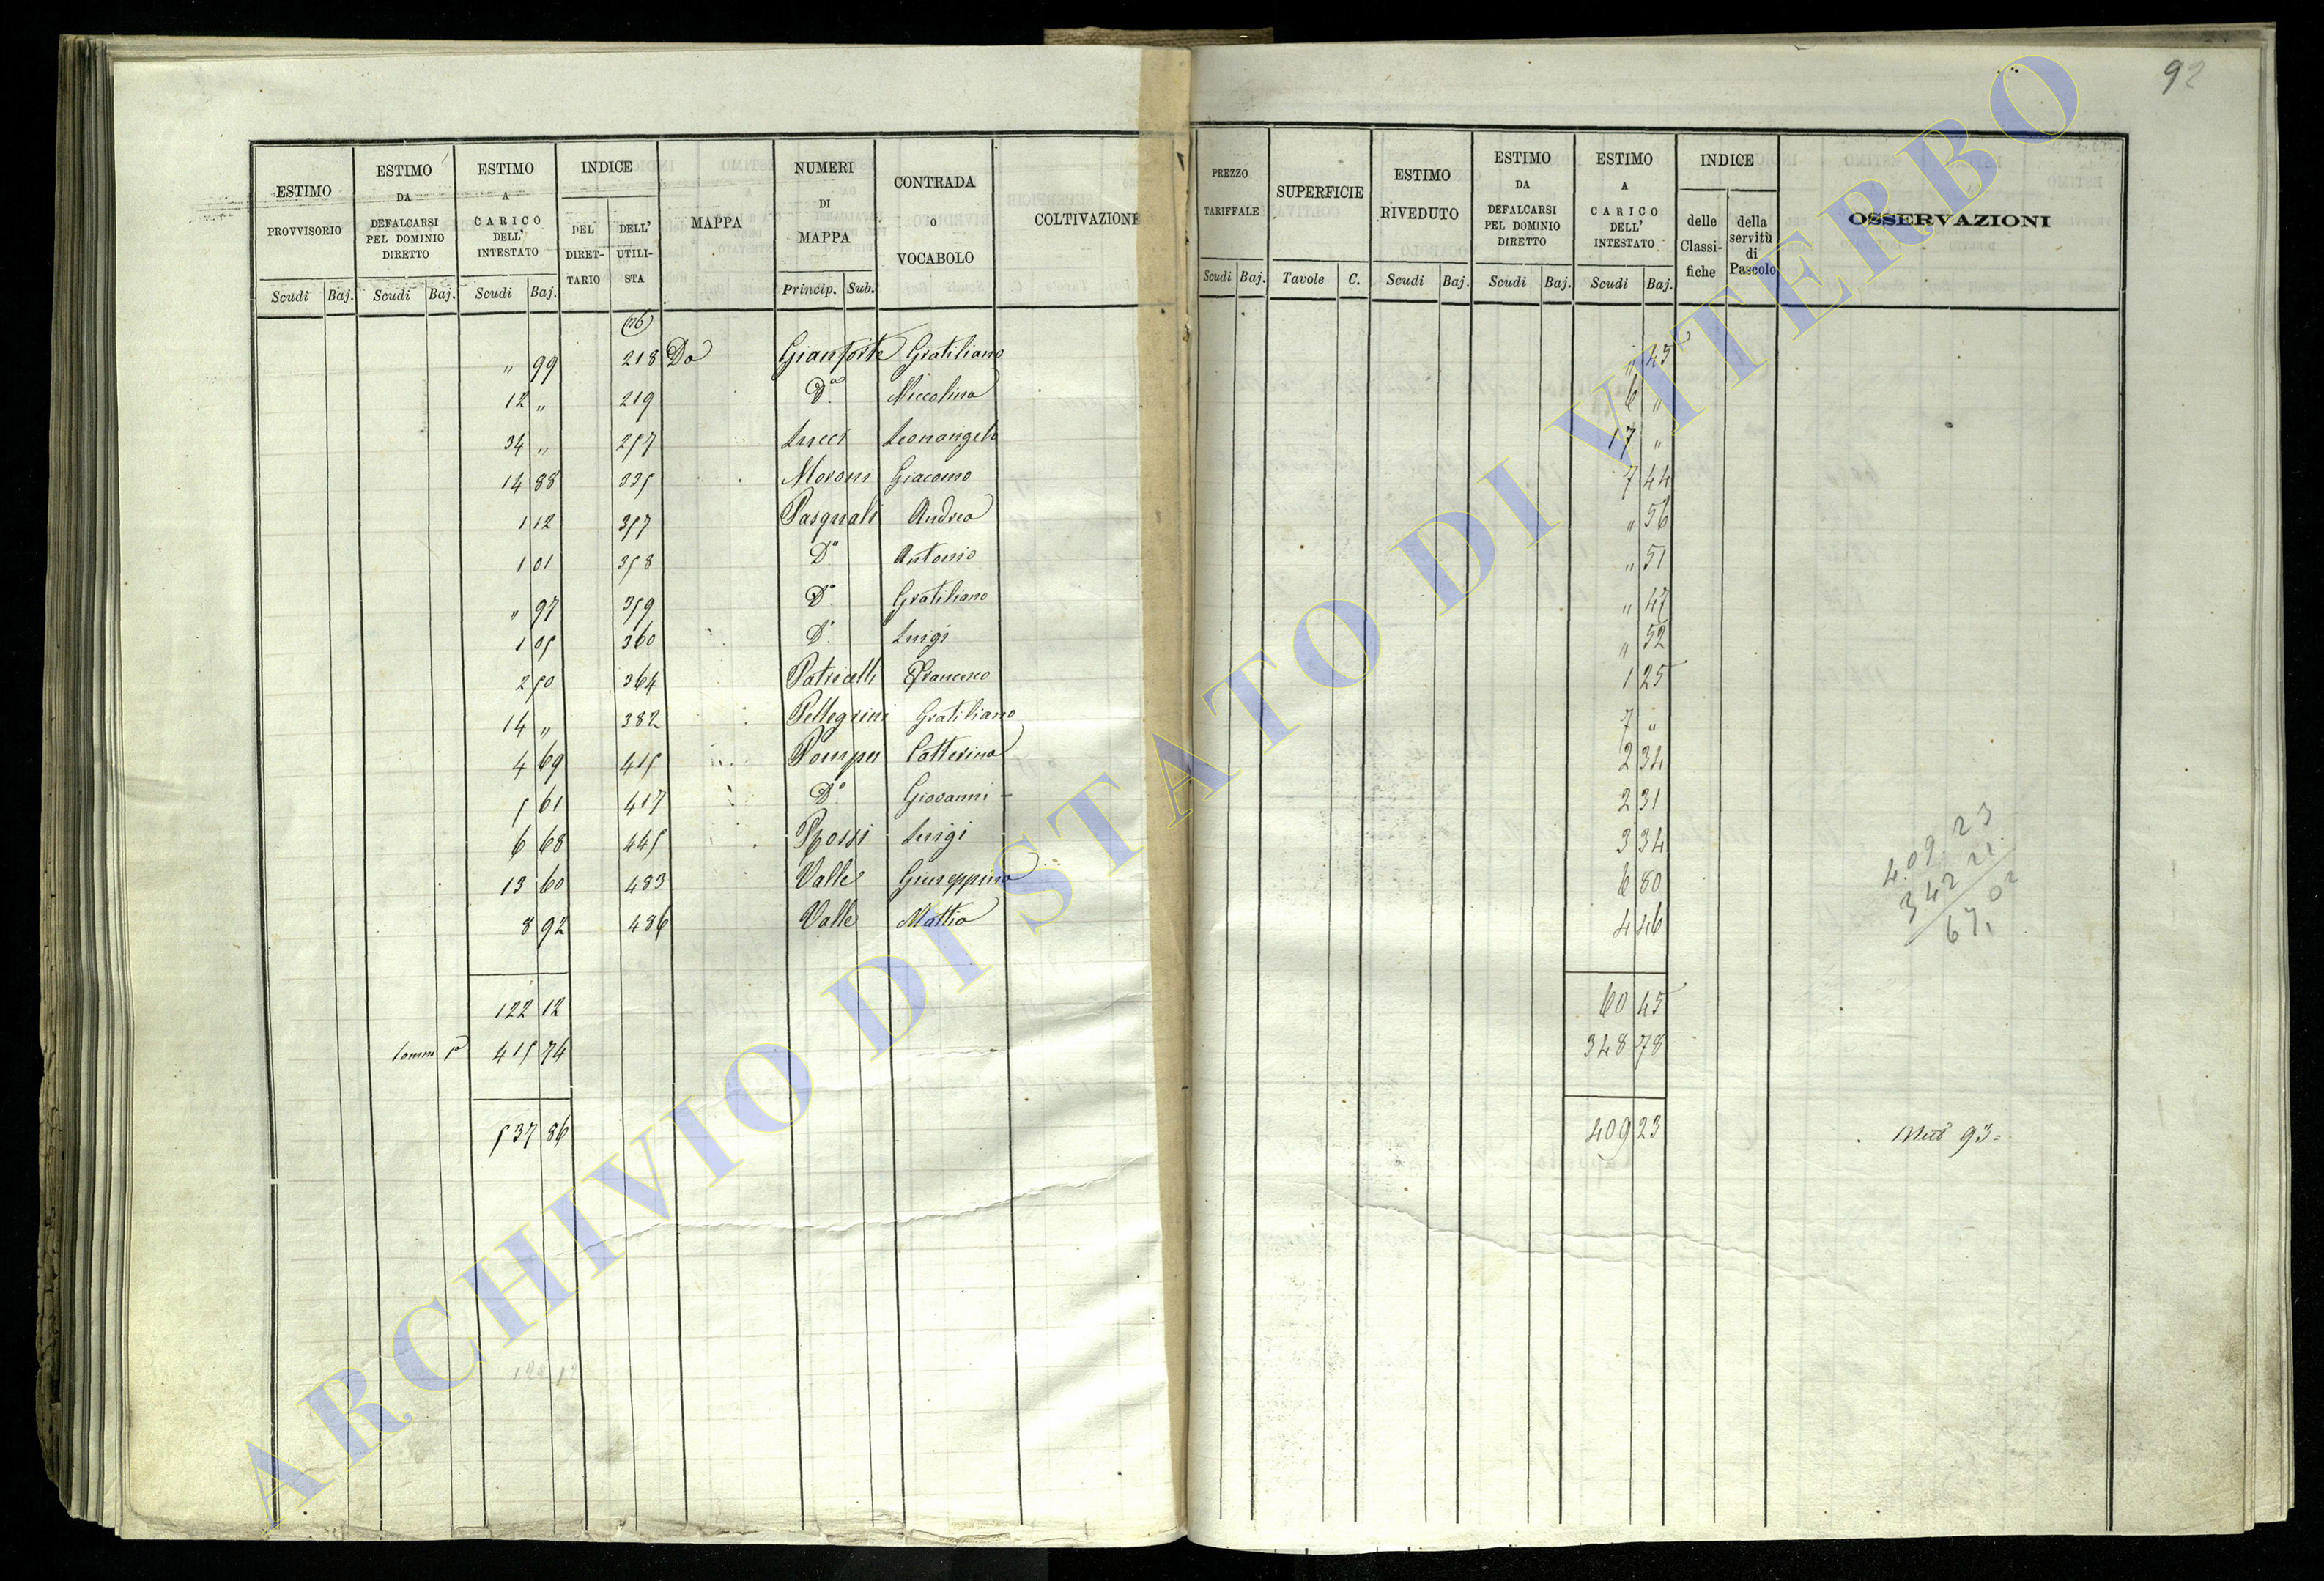 92
ESTIMO PROVVISORIO Scudi Baj.
ESTIMO DA DEFALCARSI PEL DOMINIO DIRETTO Scudi Baj.
ESTIMO A CARICO DELL' INTESTATO Scudi Baj.
INDICE DEL DIRET-TARIO DELL' UTILI-STA
MAPPA
NUMERI DI MAPPA Princip. Sub.
CONTRADA o VOCABOLO
COLTIVAZIONE
PREZZO TARIFFALE Scudi Baj.
SUPERFICIE Tavole C.
ESTIMO RIVEDUTO Scudi Baj.
ESTIMO DA DEFALCARSI PEL DOMINIO DIRETTO Scudi Baj.
ESTIMO A CARICO DELL' INTESTATO Scudi Baj.
INDICE delle Classi-fiche della servitù di Pascolo
OSSERVAZIONI
„ 99 218 Da Gianforte Gratiliano „
12 „ 219 Da Niccolina 6 „
34 „ 257 Lucci Leonangelo 17 „
14 88 335 Moroni Giacomo 7 44
1 12 357 Pasquali Andrea „ 56
1 01 358 Do Antonio „ 51
„ 97 359 Do Gratiliano „ 47
1 05 360 Do Luigi „ 52
2 50 364 Patricelli Francesco 1 25
14 „ 382 Pellegrini Gratiliano 7 „
4 69 415 Pompei Catterina 2 34
5 61 417 Do Giovanni 2 31
6 68 445 Rossi Luigi 3 34
13 60 483 Valle Giuseppina 6 80
8 92 486 Valle Mattia 4 46
409 23
342 21
67,02
122 12 60 45
415 74 348 78
537 86 409 23 93
ARCHIVIO DI STATO DI VITERBO